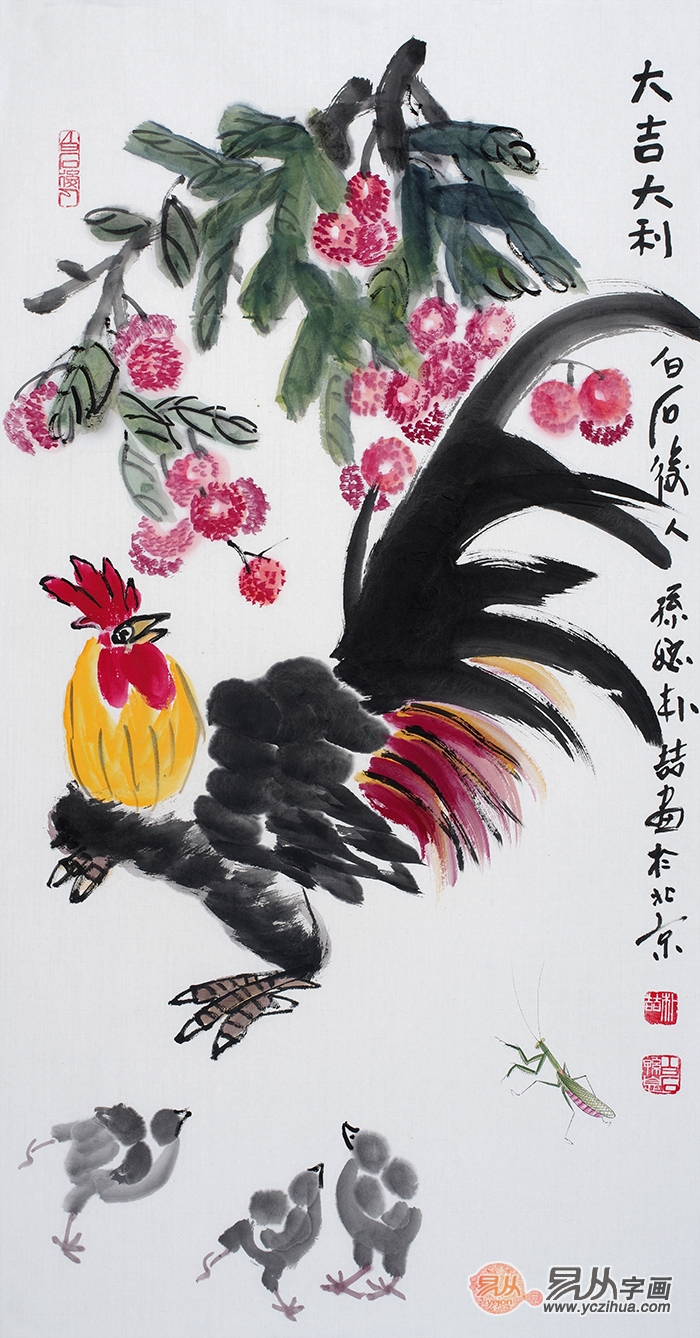 大吉大利
白石後人 孫婿朴喆画於北京
朴喆
易从
易从字画
www.yczihua.com